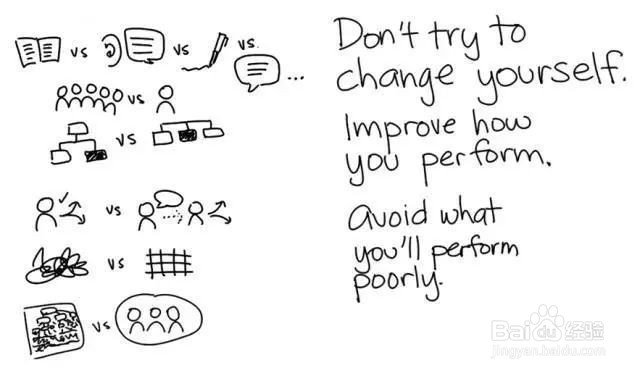 vs vs vs.
...
vs
vs
vs
vs
vs
Don't try to
change yourself.
Improve how
you perform.
avoid what
you'll perform
poorly.
Bai 经验
jingyan.baidu.com